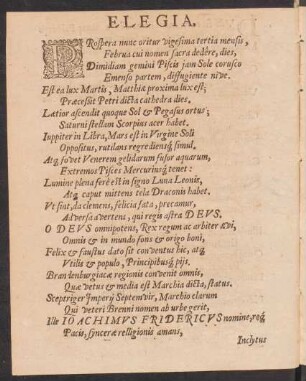 ELEGIA.
PRospera nunc oritur vigesima tertia mensis,
Februa cui nomen sacra dedêre, dies,
Dimidiam gemini Piscis jam Sole corusco
Emenso partem, diffugiente nive.
Est ea lux Martis, Matthiæ proxima lux est;
Præcessit Petri dicta cathedra dies.
Lætior ascendit quoque Sol & Pegasus ortus;
Saturni stellam Scorpius acer habet.
Iuppiter in Libra, Mars est in Virgine Soli
Oppositus, rutilans regrediensq́; simul.
Atq́; fovet Venerem gelidarum fusor aquarum,
Extremos Pisces Mercuriusq́; tenet:
Lumine plena ferè est in signo Luna Leonis,
Atq́; caput mittens tela Draconis habet.
Vt sint, da clemens, felicia fata, precamur,
Adversa avertens, qui regis astra DEVS,
O DEVS omnipotens, Rex regum ac arbiter ævi,
Omnis & in mundo fons & origo boni,
Felix & faustus dato sit conventus hic, atq́;
Vtilis & populo, Principibusq́; pijs.
Brandenburgiacæ regionis convenit omnis,
Quæ vetus & media est Marchia dicta, status.
Sceptriger Imperij Septemvir, Marchio clarum
Qui veteri Brenni nomen ab urbe gerit,
Ille IOACHIMVS FRIDERICVS nomine, req́;
Pacis, synceræ relligionis amans,
Inclytus